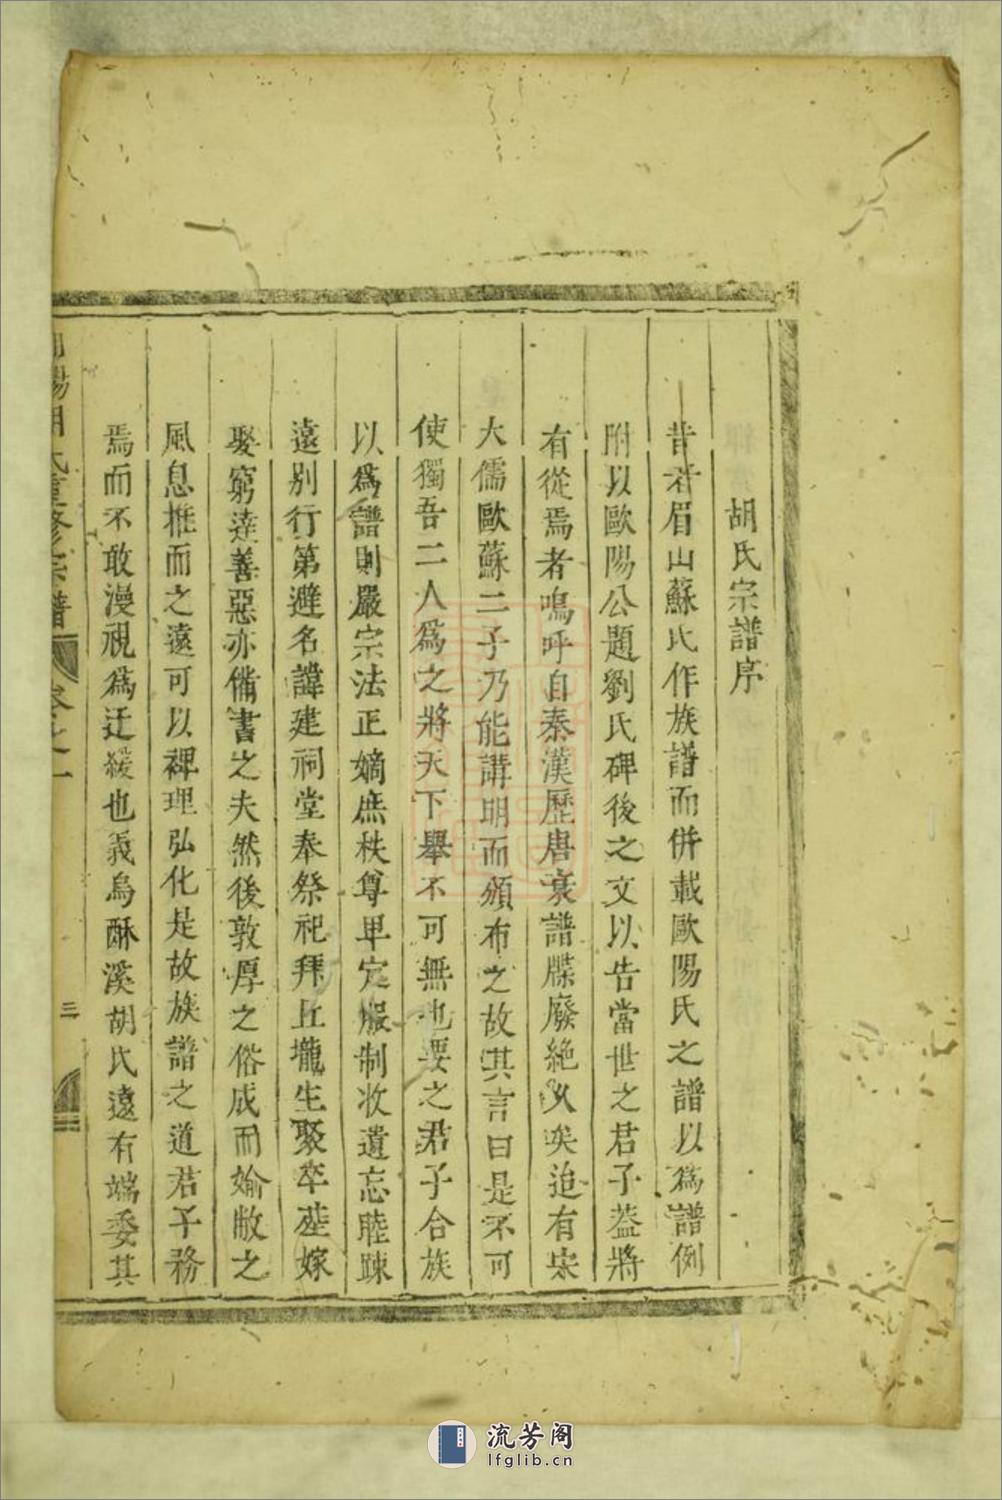 胡氏宗譜序
昔者眉山蘇氏作族譜而併載歐陽氏之譜以爲譜例
附以歐陽公題劉氏碑後之文以告當世之君子葢將
有從焉者嗚呼自秦漢歷唐衰譜牒廢絶久矣迨有宋
大儒歐蘇二子乃能講明而頒布之故其言曰是不可
使獨吾二人爲之將天下舉不可無也要之君子合族
以爲譜則嚴宗法正嫡庶秩尊卑定服制收遺忘睦踈
遠别行第避名諱建祠堂奉祭祀拜丘壠生聚卒塟嫁
娶窮達善惡亦備書之夫然後敦厚之俗成而媮敝之
風息推而之遠可以裨理弘化是故族譜之道君子務
焉而不敢漫視爲迂緩也義烏酥溪胡氏遠有端委其
陽胡氏重修宗譜 卷之一 三
流芳阁
lfglib.cn